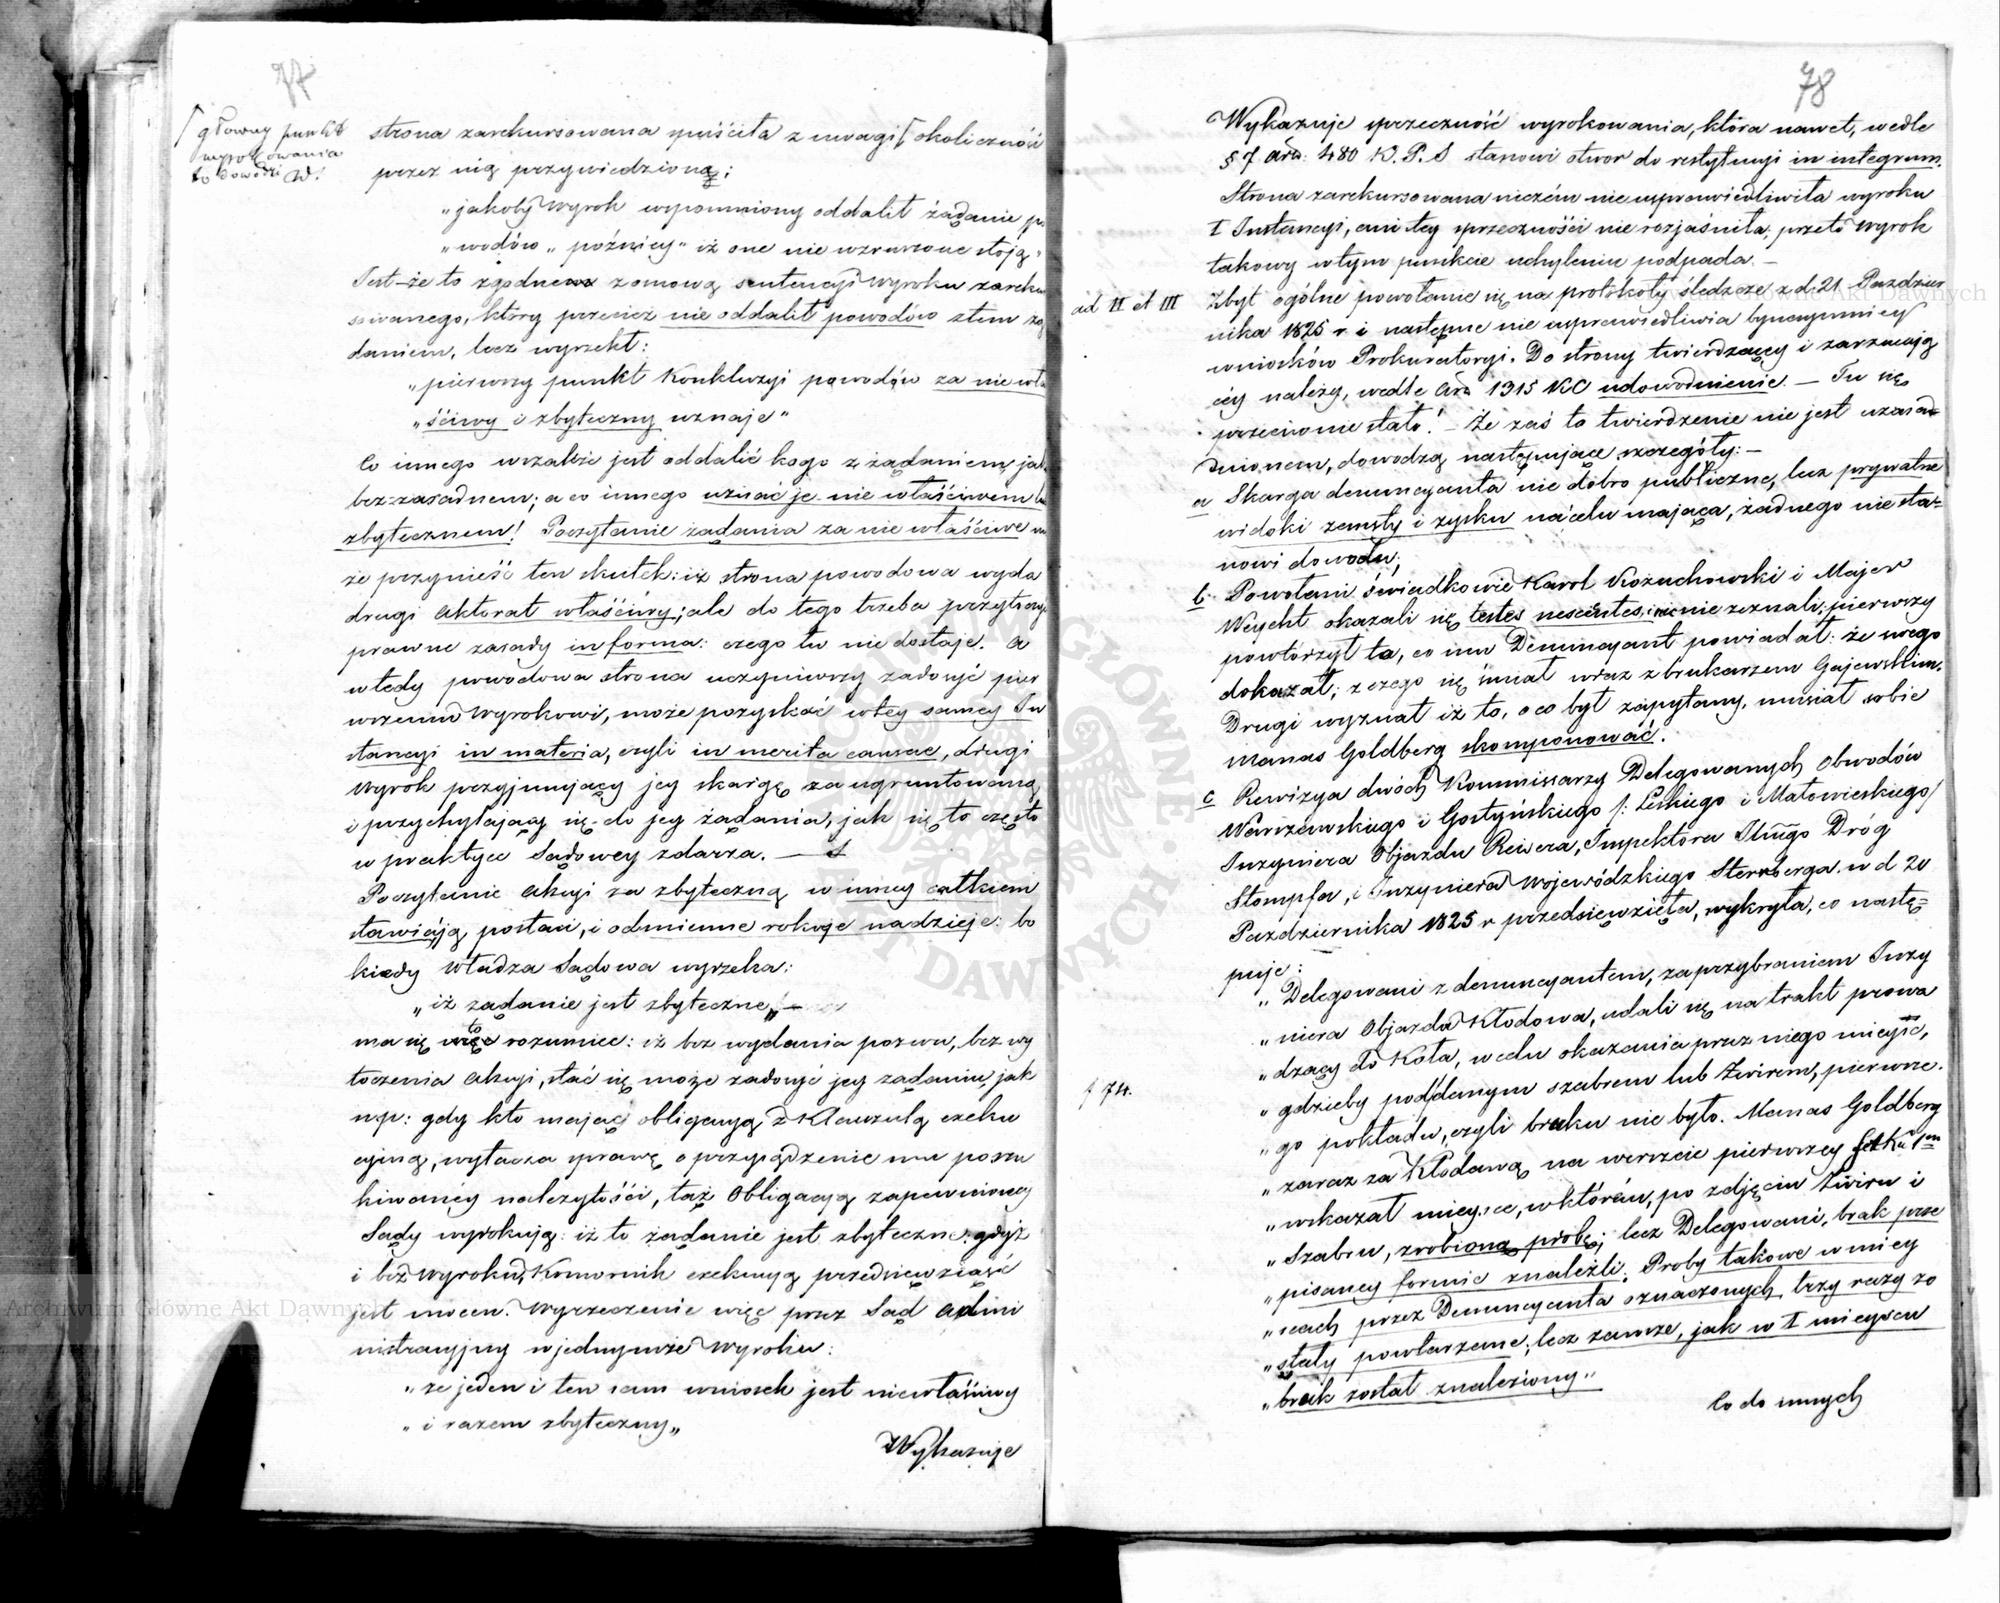 77
główny punkt
wyrokowania
to dowodzi
strona zarekursowana puściła z uwagi okoliczność
przez nią przywiedzioną;
„jakoby Wyrok wspomniony oddalił żądanie po
„wodów „później" iż one nie wzruszone stoją"
Jest-że to zgodnem z omową sentencyi Wyroku zareku
sowanego, który przecież nie oddalił powodów z tem żą
daniem, lecz wyrzekł:
„pierwszy punkt Konkluzyi powodów za niewła
„ściwy i zbyteczny uznaje"
Co innego wszakże jest oddalić kogo z żądaniem, jako
bezzasadnem; a co innego uznać je nie właściwem lub
zbytecznem! Poczytanie żądania za nie właściwe mo
że przynieść ten skutek: iż strona powodowa wyda
drugi aktorat właściwy; ale do tego trzeba przytoczyć
prawne zasady in forma: czego tu nie dostaje. A
wtedy powodowa strona uczyniwszy zadosyć pier
wszemu Wyrokowi, może pozyskać w tey samey In
stancyi in materia, czyli in merita causae, drugi
Wyrok przyjmujący jey skargę za ugruntowaną
i przychylający się do jey żądania, jak się to często
w praktyce Sądowey zdarza. —
Poczytanie akcyi za zbyteczną w inney całkiem
stawiają postaci, i odmienne rokuje nadzieje: bo
kiedy Władza Sądowa wyrzeka:
„iż żądanie jest zbyteczne„ —
ma się to rozumieć: iż bez wydania pozwu, bez wy
toczenia akcyi, stać się może zadosyć jey żądaniu, jak
np: gdy kto mając obligacyą z Klauzulą exeku
cyjną, wytacza sprawę o przysądzenie mu poszu
kiwaney należytości, taż Obligacyą zapewnioney
Sądy wyrokują: iż to żądanie jest zbyteczne, gdyż
i bez Wyroku, Komornik exekucyą przedsięwziąść
jest mocen. Wyrzeczenie więc przez Sąd admi
nistracyjny w jednymże Wyroku:
„że jeden i ten sam wniosek jest niewłaściwy
„i razem zbyteczny„
Wykazuje
78
Wykazuje sprzeczność wyrokowania, która nawet, wedle
§ 7 Art: 480 K. P. S stanowi otwor do restytucyi in integrum.
Strona zarekursowana niczém nie usprawiedliwiła wyroku
I Instancyi, ani tey sprzeczności nie rozjaśniła; przeto Wyrok
takowy w tym punkcie uchyleniu podpada. —
ad II et III
Zbyt ogólne powołanie się na protokoły śledcze z d. 21 Paździer
nika 1825 r i następne nie usprawiedliwia bynaymniey
wniosków Prokuratoryi. Do strony twierdzącey i zarzucają
cey należy, wedle Art 1315 KC udowodnienie. — Tu się
przeciwnie stało! — Że zaś to twierdzenie nie jest uzasad=
nionem, dowodzą następujące szczegóły: —
a Skarga denuncyanta nie dobro publiczne, lecz prywatne
widoki zemsty i zysku na celu mająca, żadnego nie sta=
nowi dowodu;
b. Powołani świadkowie Karol Kożuchowski i Majer
Weycht okazali się testes nescientes; nic nie zeznali; pierwszy
powtórzył to, co mu Denuncyant powiadał: że swego
dokazał; z czego się śmiał wraz z brukarzem Gajewskim.
Drugi wyznał iż to, o co był zapytany, musiał sobie
Manas Goldberg skomponować.
c Rewizya dwóch Kommissarzy Delegowanych Obwodów
Warszawskiego i Gostyńskiego /: Leskiego i Małowieskiego/
Inżyniera Objazdu Reiwera, Inspektora Dróg
Stompfa, i Inżyniera Wojewódzkiego Sternberga. w d 20
Października 1825 r przedsięwzięta, wykryła, co nastę=
puje:
„Delegowani z denuncyantem, za przybraniem Inży
„niera Objazdu Kłodowa, udali się na trakt prowa
„dzący do Koła, w celu okazania przez niego mieysc,
f 74.
„gdzieby pod danym szabrem lub żwirem, pierwsze
„go pokładu, czyli bruku nie było. Manas Goldberg
„zaraz za Kłodawą na werszcie pierwszey
„wskazał mieysce, w którém, po zdjęciu żwiru i
„Szabru, zrobioną próbę; lecz Delegowani, brak prze
„pisaney formie znaleźli; Proby takowe w miey
„scach przez Denuncyanta oznaczonych trzy razy zo
„stały powtarzane; lecz zawsze, jak w I mieyscu
„brak został znaleziony"
Co do innych
Archiwum Główne Akt Dawnych
Archiwum Główne Akt Dawnych
ARCHIWUM GŁÓWNE AKT DAWNYCH